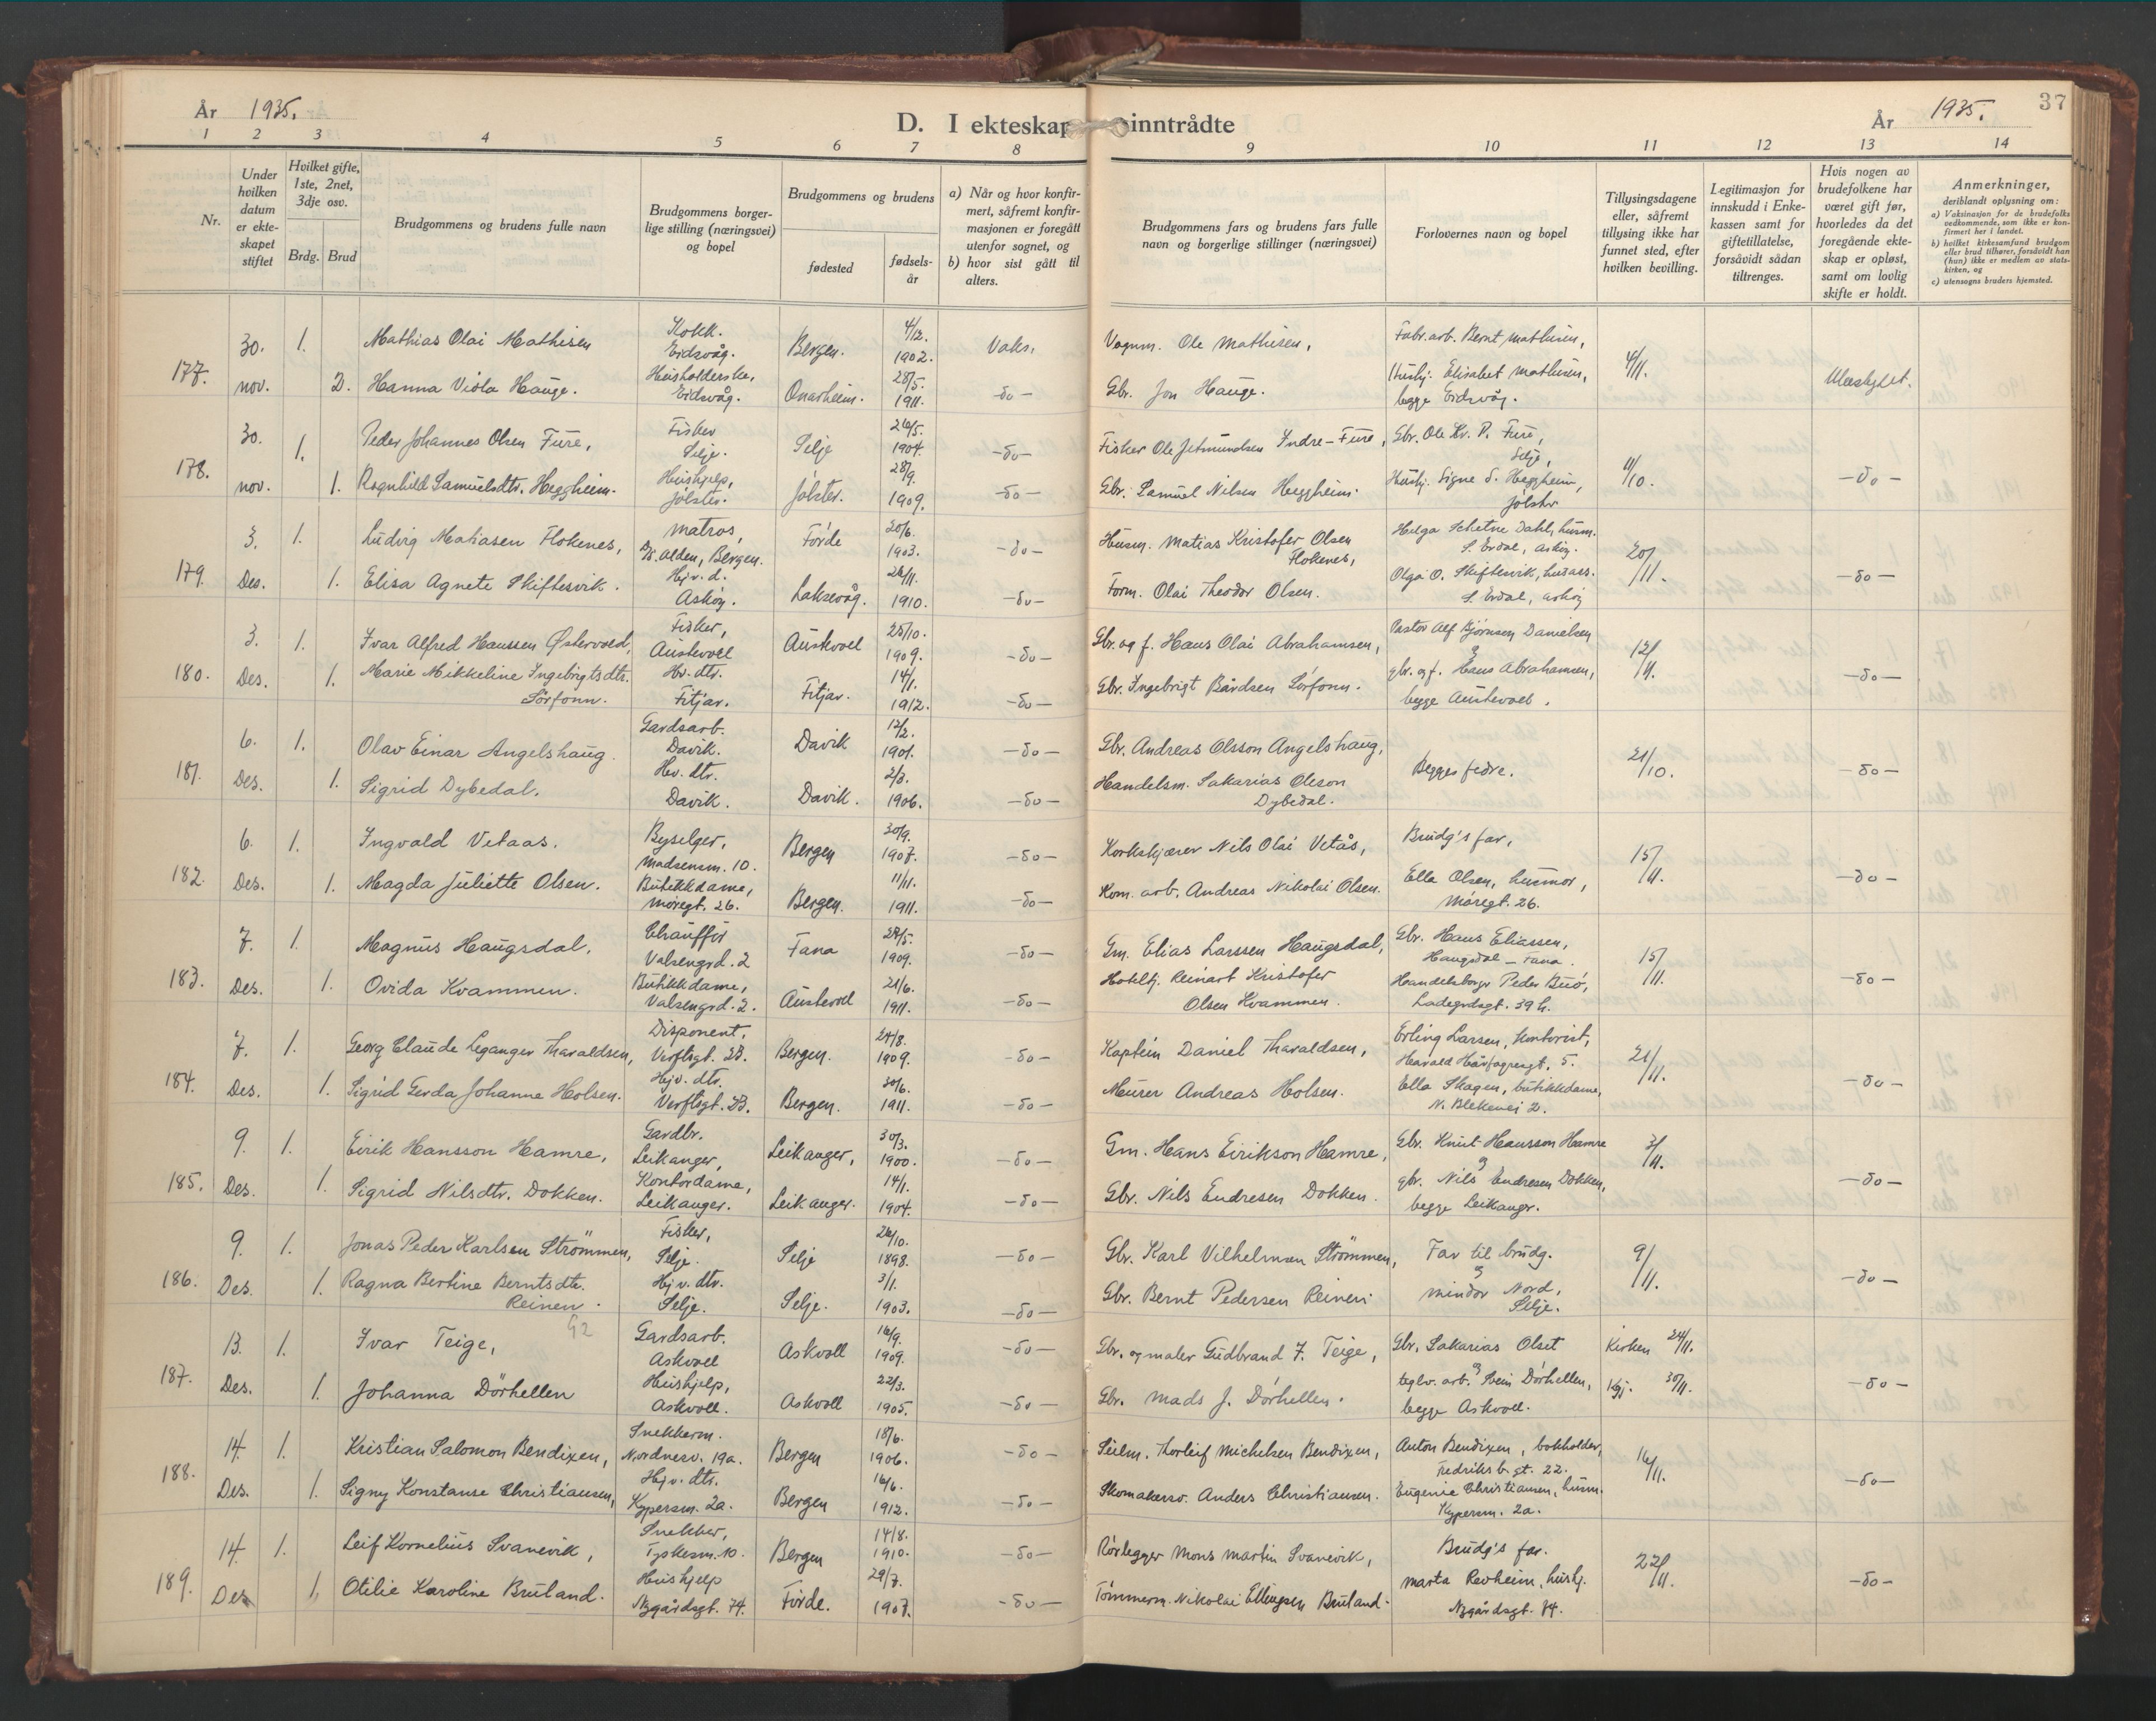 År 1935.
D. I ekteskap inntrådte
År 1935.
37
1 2 3 4 5 6 7 8 9 10 11 12 13 14
Nr.
Under hvilken datum er ekteskapet stiftet
Hvilket gifte, 1ste, 2net, 3dje osv.
Brdg. Brud
Brudgommens og brudens fulle navn
Brudgommens borgerlige stilling (næringsvei) og bopel
Brudgommens og brudens
fødested
fødselsår
a) Når og hvor konfirmert, såfremt konfirmasjonen er foregått utenfor sognet, og
b) hvor sist gått til alters.
Brudgommens fars og brudens fars fulle navn og borgerlige stillinger (næringsvei)
Forlovernes navn og bopel
Tillysingsdagene eller, såfremt tillysing ikke har funnet sted, efter hvilken bevilling.
Legitimasjon for innskudd i Enkekassen samt for giftetillatelse, forsåvidt sådan tiltrenges.
Hvis nogen av brudefolkene har været gift før, hvorledes da det foregående ekteskap er opløst, samt om lovlig skifte er holdt.
Anmerkninger,
deriblandt oplysning om:
a) Vaksinasjon for de brudefolks vedkommende, som ikke er konfirmert her i landet.
b) hvilket kirkesamfund brudgom eller brud tilhører, forsåvidt han (hun) ikke er medlem av statskirken, og
c) utensogns bruders hjemsted.
177. 30. nov. 1. Mathias Olai Mathisen Kokk. Eidsvåg. Bergen. 4/12. 1902. Vaks. Vognm. Ole Mathisen, Fabr. arb. Bernt Mathisen, 4/11.
2. Hanna Viola Hauge. Husholderske, Eidsvåg. Onarheim. 28/5. 1911. -do- Gbr. Jon Hauge. Hushj. Elisabet Mathisen, begge Eidsvåg. Ubeskyldt.
178. 30. nov. 1. Peder Johannes Olsen Fure, Fisker Selje. Selje 26/5. 1904. -do- Fisker Ole Jetmundsen Indre-Fure, Gbr. Ole Kr. P. Fure, Selje, 4/10.
1. Ragnhild Samuelsdtr. Heggheim. Hushjelp, Jølster. Jølster. 28/9. 1909. -do- Gbr. Samuel Nilsen Heggheim. Hushj. Signe S. Heggheim, Jølster -do-
179. 3. Des. 1. Ludvig Matiasen Flokenes, Matros, D/S. Alden, Bergen. Førde 20/6. 1903. -do- Husm. Matias Kristofer Olsen Flokenes, Helga Schetne Dahl, husm. S. Erdal, Askøy. 20/11.
1. Elisa Agnete Skiftesvik. Hjv. d. Askøy. Laksevåg. 26/11. 1910. -do- Form. Olai Theodor Olsen. Olga O. Skiftesvik, husass. S. Erdal, Askøy -do-
180. 3. Des. 1. Ivar Alfred Hanssen Østervold, Fisker, Austevoll Austevoll 25/10. 1909. -do- Gbr. og f. Hans Olai Abrahamsen, Pastor Alf Bjørnsen Danielsen 12/11.
1. Marie Mikkeline Ingebrigtsdtr. Sørfonn. Hv. dtr. Fitjar. Fitjar. 14/1. 1912. -do- Gbr. Ingebrigt Bårdsen Sørfonn. og gbr. og f. Hans Abrahamsen, begge Austevoll. -do-
181. 6. Des. 1. Olav Einar Angelshaug Gardsarb. Davik. Davik 12/2. 1901. -do- Gbr. Andreas Olsson Angelshaug, Begges fedre. 21/10.
1. Sigrid Dybedal. Hv. dtr. Davik. Davik. 2/3. 1906. -do- Handelsm. Sakarias Oleson Dybedal. -do-
182. 6. Des. 1. Ingvald Vetaas. Byselger, Madsensm. 10. Bergen 30/9. 1907. -do- Korkskjærer Nils Olai Vetås, Brudg's far, 15/11.
1. Magda Juliette Olsen. Butikkdame, Møregt. 26. Bergen. 11/11. 1911. -do- Kom. arb. Andreas Nikolai Olsen. Ella Olsen, husmor, Møregt. 26. -do-
183. 7. Des. 1. Magnus Haugsdal. Chauffør Valsengrd. 2 Fana 29/5. 1909. -do- Gm. Elias Larssen Haugsdal, Gbr. Hans Eliassen, Haugsdal - Fana. 15/11.
1. Ovida Kvammen. Butikkdame, Valsengrd. 2. Austevoll 21/6. 1911. -do- Hotellj. Reinart Kristofer Olsen Kvammen. Handelsborger Peder Buø, Ladegrdsgt. 39 b. -do-
184. 7. Des. 1. Georg Claude Leganger Tharaldsen, Disponent, Verftsgt. 23. Bergen. 27/8. 1909. -do- Kaptein Daniel Tharaldsen, Erling Larsen, kontorist, Harald Hårfagresgt. 5. 21/11.
1. Sigrid Gerda Johanne Holsen. Hjv. dtr. Verftsgt. 23. Bergen. 30/6. 1911. -do- Murer Andreas Holsen. Ella Skagen, butikkdame, N. Blekevei 2. -do-
185. 9. Des. 1. Eirik Hansson Hamre, Gardbr. Leikanger, Leikanger, 30/3. 1900. -do- Gm. Hans Eirikson Hamre, Gbr. Knut Hansson Hamre 3/11.
1. Sigrid Nilsdtr. Dokken. Kontordame, Leikanger. Leikanger. 14/1. 1904. -do- Gbr. Nils Endresen Dokken. og gbr. Nils Endresen Dokken, begge Leikanger. -do-
186. 9. Des. 1. Jonas Peder Karlsen Strömmen, Fisker, Selje. Selje 26/10. 1898. -do- Gbr. Karl Vilhelmsen Strömmen, Far til brudg. 9/11.
1. Ragna Bertine Berntsdtr. Reinen. Hjv. dtr. Selje. Selje. 3/1. 1903. -do- Gbr. Bernt Pedersen Reinen. og Mindor Nord, Selje. -do-
G2
187. 13. Des. 1. Ivar Teige, Gardsarb. Askvoll Askvoll 16/9. 1909. -do- Gbr. og maler Gudbrand J. Teige, Gbr. Sakarias Olset Kirken 24/11.
1. Johanna Dörhellen Hushjelp, Askvoll. Askvoll 22/3. 1905. -do- Gbr. Mads J. Dörhellen. og teglv. arb. Svein Dörhellen, begge Askvoll. Kgj. 30/11. -do-
188. 14. Des. 1. Kristian Salomon Bendixen, Snekkerm. Nordnesv. 19a. Bergen 18/6. 1906. -do- Seilm. Thorleif Michelsen Bendixen, Anton Bendixen, bokholder, Fredriksb. gt. 22. 16/11.
1. Signy Konstanse Christiansen, Hjv. dtr. Kypersm. 2a. Bergen 16/6. 1912. -do- Skomakersv. Anders Christiansen. Eugenie Christiansen, husm. Kypersm. 2a. -do-
189. 14. Des. 1. Leif Kornelius Svanevik, Snekker, Tyskesm. 10. Bergen 14/8. 1910. -do- Rørlegger Mons Martin Svanevik, Brudg's far. 22/11.
1. Otilie Karoline Bruland. Hushjelp Nygårdsgt. 74. Førde. 29/7. 1907. -do- Tømmerm. Nikolai Ellingsen Bruland. Marta Revheim, hushj. Nygårdsgt. 74. -do-